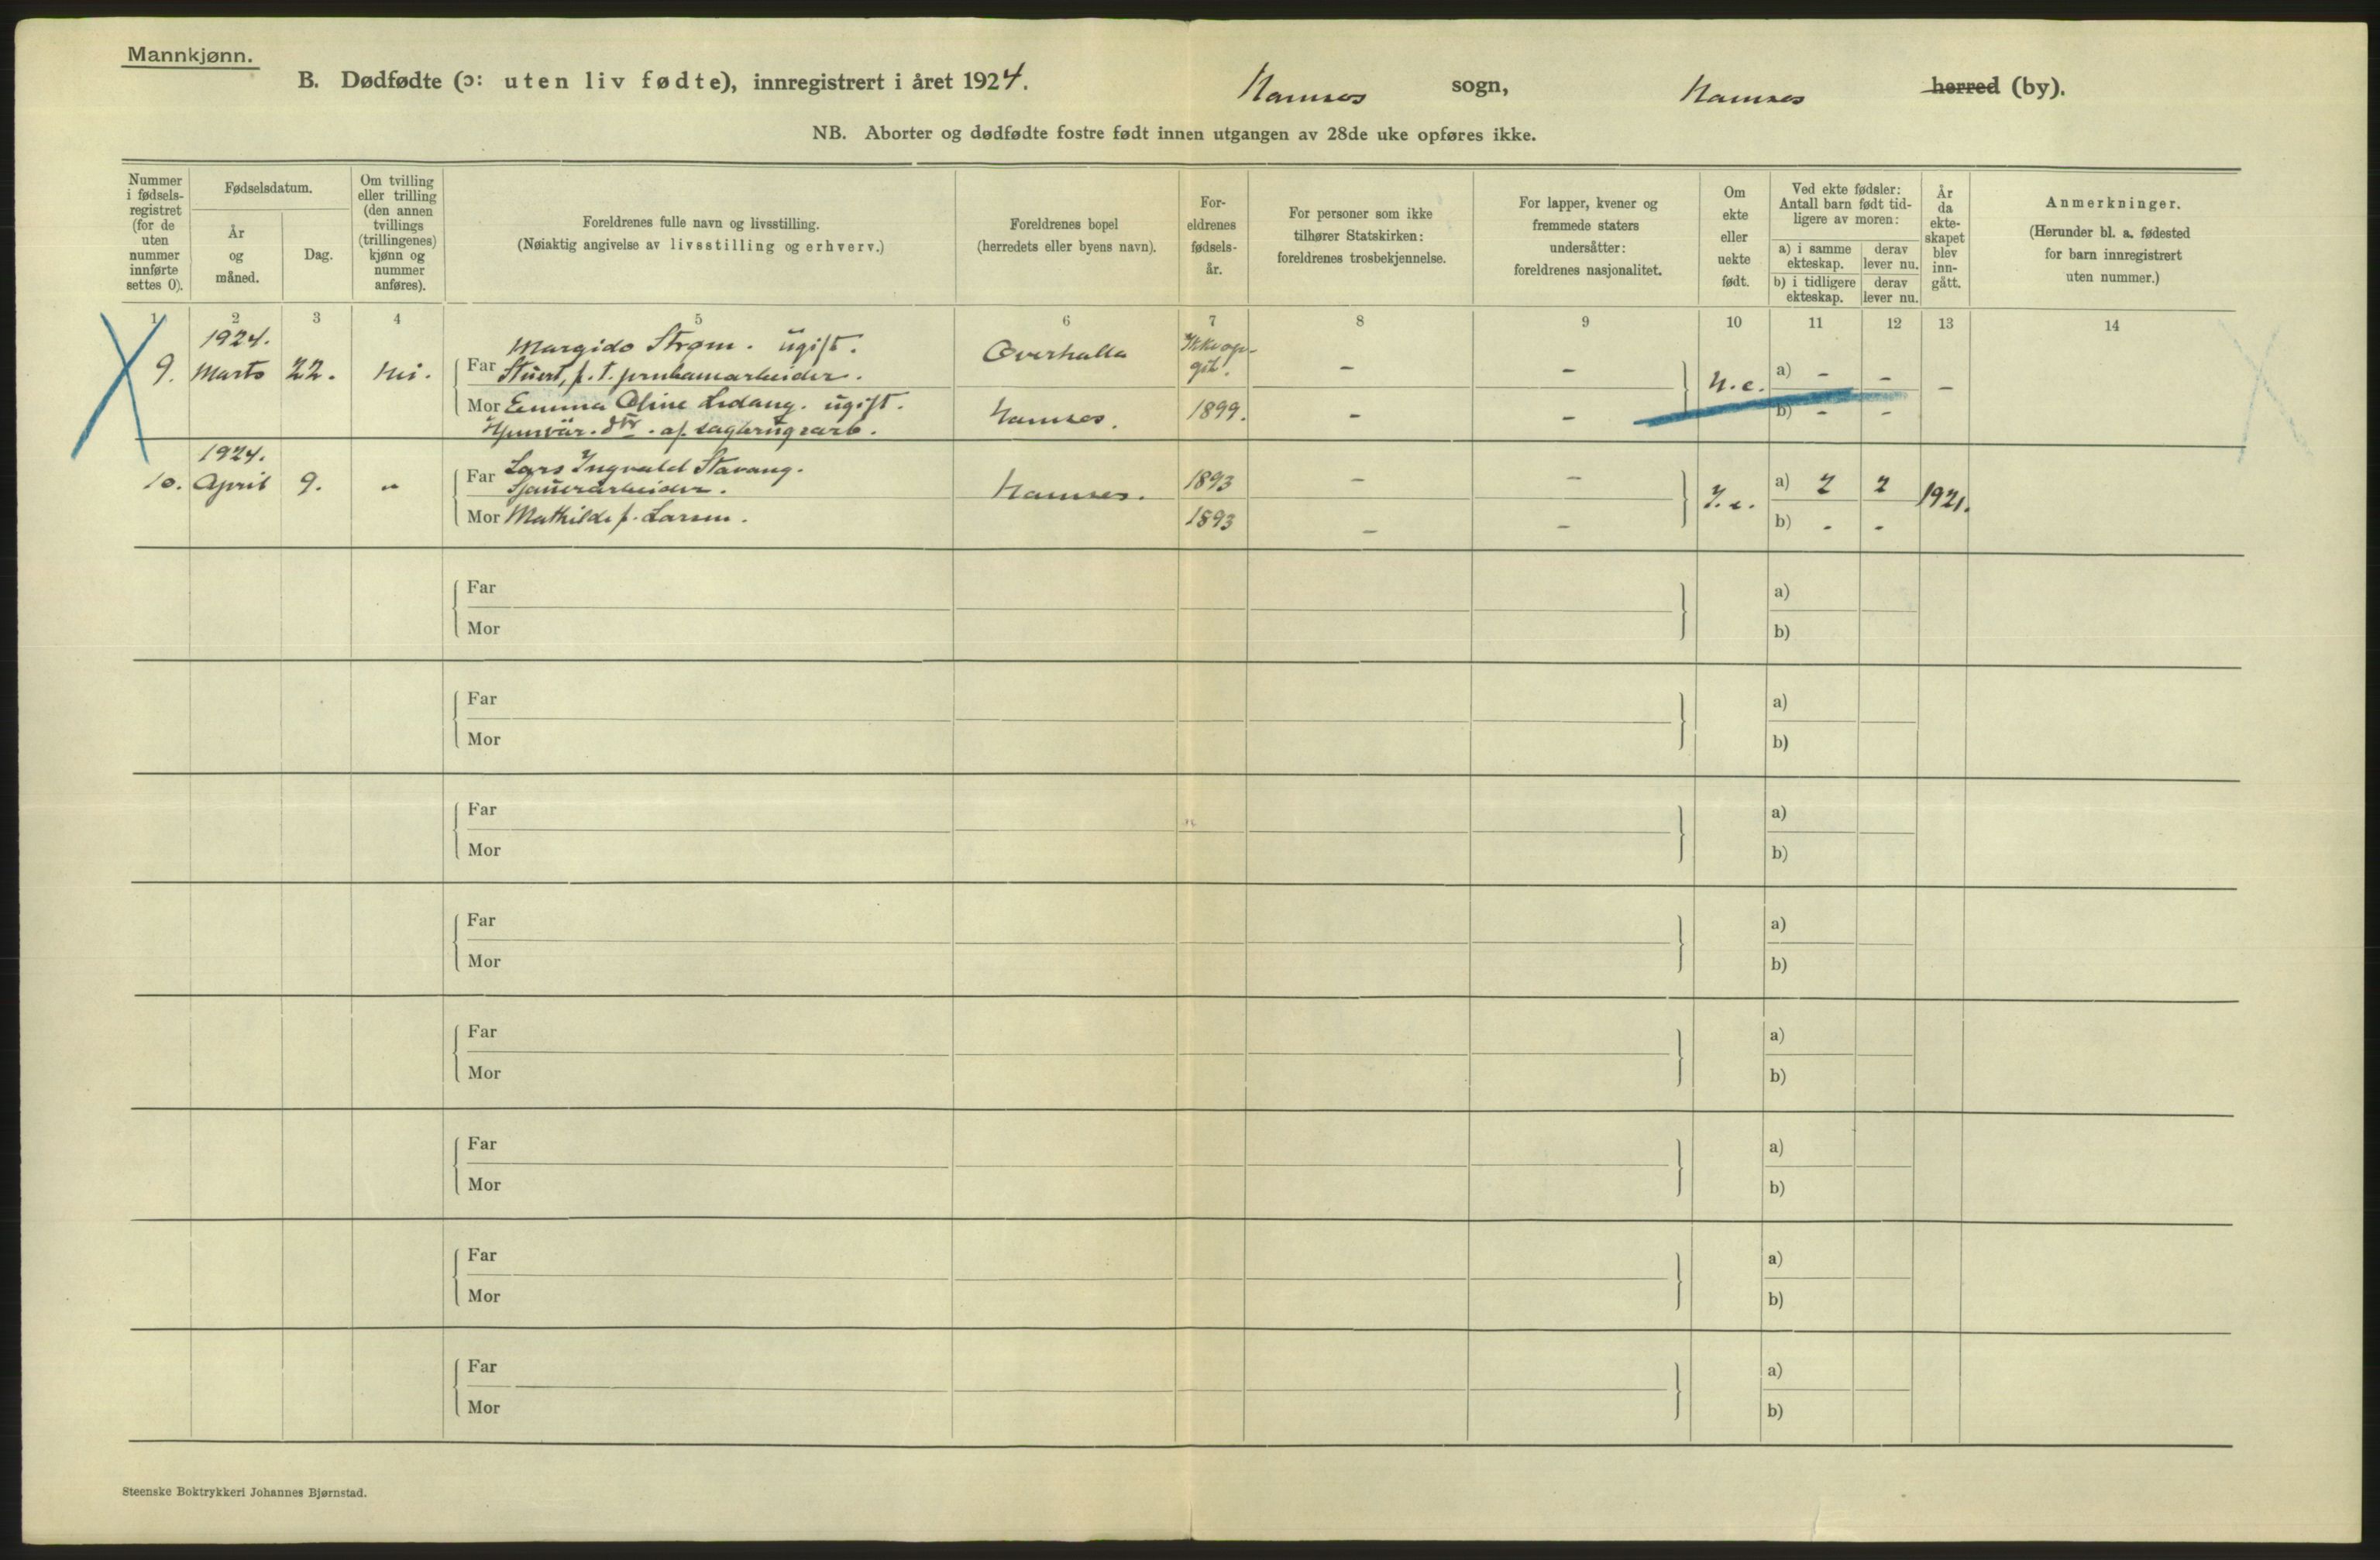 Mannkjønn.
B. Dødfødte (ɔ: uten liv fødte), innregistrert i året 1924. Namsos sogn, Namsos herred (by).
NB. Aborter og dødfødte fostre født innen utgangen av 28de uke opføres ikke.
Nummer i fødsels- registret (for de uten nummer innførte settes 0).
Fødselsdatum.
År og måned.
Dag.
Om tvilling eller trilling (den annen tvillings (trillingenes) kjønn og nummer anføres).
Foreldrenes fulle navn og livsstilling.
(Nøiaktig angivelse av livsstilling og erhverv.)
Foreldrenes bopel
(herredets eller byens navn).
For- eldrenes fødsels- år.
For personer som ikke tilhører Statskirken: foreldrenes trosbekjennelse.
For lapper, kvener og fremmede staters undersåtter: foreldrenes nasjonalitet.
Om ekte eller uekte født.
Ved ekte fødsler: Antall barn født tid- ligere av moren:
a) i samme ekteskap.
derav lever nu.
b) i tidligere ekteskap.
derav lever nu.
År da ekte- skapet blev inn- gått.
Anmerkninger.
(Herunder bl. a. fødested for barn innregistrert uten nummer.)
1 2 3 4 5 6 7 8 9 10 11 12 13 14
1924.
9. Marts 22. Nei.
Margido Strøm. ugift.
Far Stuert, f. t. 
Overhalla Ikke op- git. – –
Mor Emma Oline Ledang. ugift.
dtr. af sagbrugsarb.
Namsos. 1899. – –
U.e. a) – – –
b) – –
1924.
10. April 9. „
Far Lars Ingvald Stavang.
Sjauerarbeider.
Namsos. 1893 – –
Mor Mathilde f. Larsen.
1893 – –
I.e. a) 2 2 1921.
b) - -
Far a)
Mor b)
Far a)
Mor b)
Far a)
Mor b)
Far a)
Mor b)
Far a)
Mor b)
Far a)
Mor b)
Far a)
Mor b)
Far a)
Mor b)
Steenske Boktrykkeri Johannes Bjørnstad.